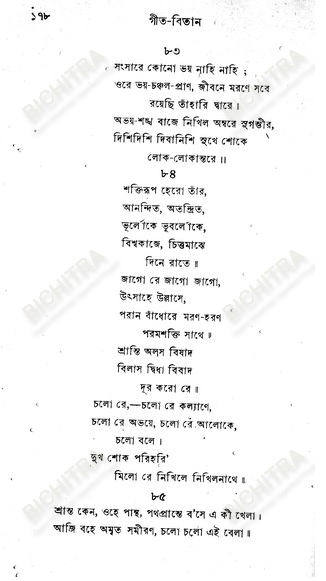 ১৭৮ গীত-বিতান
৮৩
সংসারে কোনো ভয় নাহি নাহি ;
ওরে ভয়-চঞ্চল-প্রাণ, জীবনে মরণে সবে
রয়েছি তাঁহারি দ্বারে ।
অভয়-শঙ্খ বাজে নিখিল অম্বরে সুগম্ভীর,
দিশিদিশি দিবানিশি সুখে শোকে
লোক-লোকান্তরে ॥
৮৪
শক্তিরূপ হেরো তাঁর,
আনন্দিত, অতন্দ্রিত,
ভূর্লোকে ভূবর্লোকে,
বিশ্বকাজে, চিত্তমাঝে
দিনে রাতে ॥
জাগো রে জাগো জাগো,
উৎসাহে উল্লাসে,
পরান বাঁধোরে মরণ-হরণ
পরমশক্তি সাথে ॥
শ্রান্তি অলস বিষাদ
বিলাস দ্বিধা বিবাদ
দূর করো রে ॥
চলো রে,—চলো রে কল্যাণে,
চলো রে অভয়ে, চলো রে আলোকে,
চলো বলে ।
দুখ শোক পরিহরি'
মিলো রে নিখিলে নিখিলনাথে ॥
৮৫
শ্রান্ত কেন, ওহে পান্থ, পথপ্রান্তে ব'সে এ কী খেলা ।
আজি বহে অমৃত সমীরণ, চলো চলো এই বেলা ॥
BICHITRA